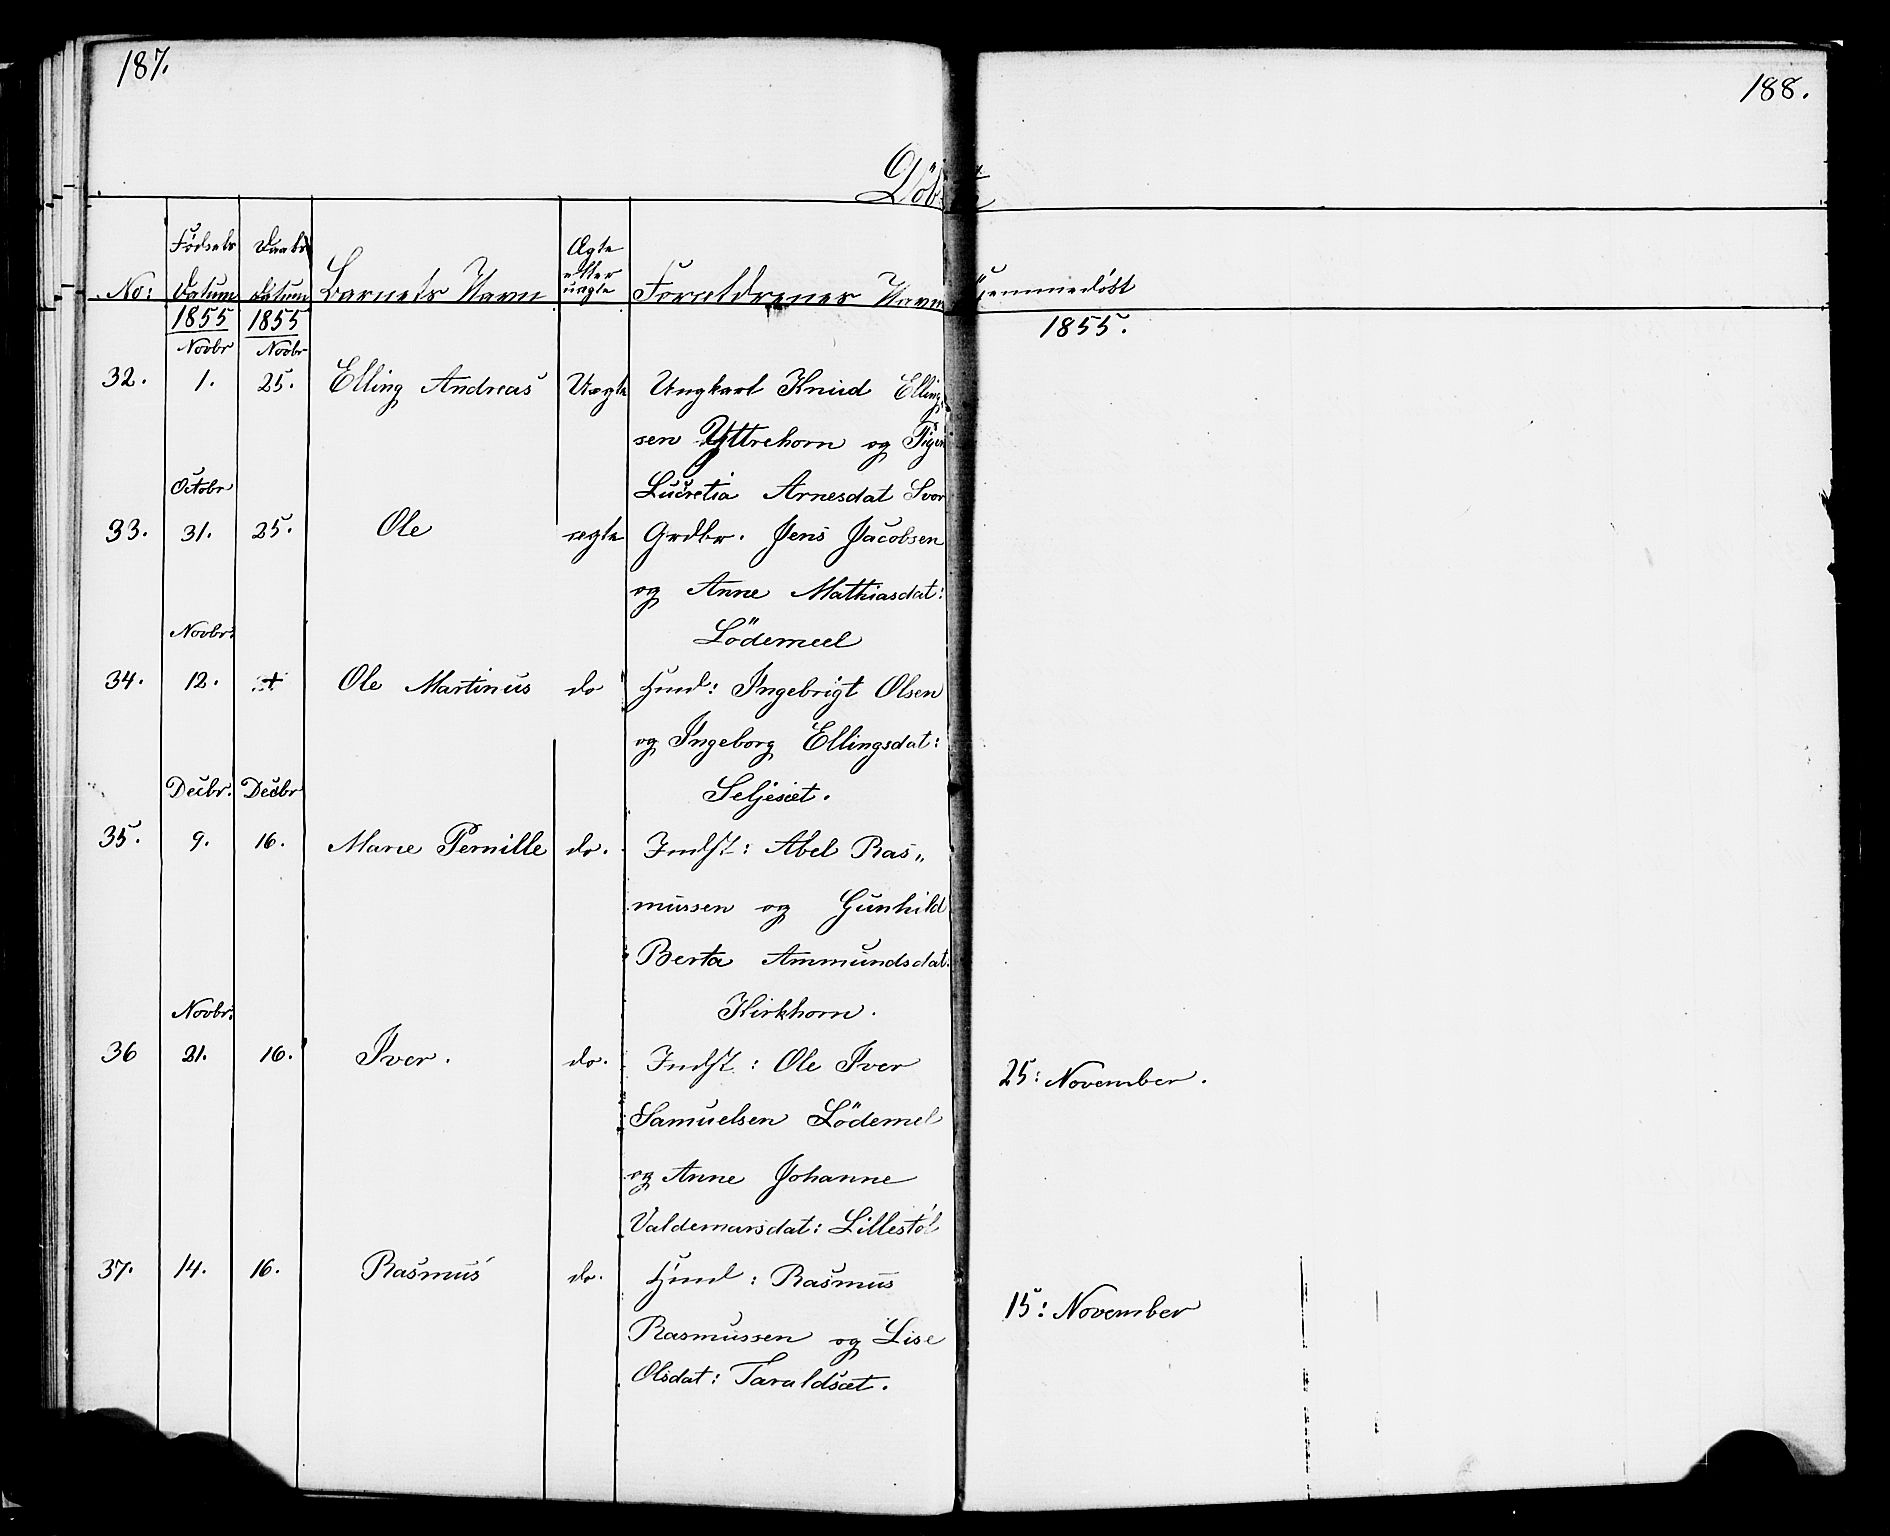 187.
188.
Döbte
No: Fødsels Datum Daabs datum Barnets Navn Ægte eller uægte Forældrenes Navn Hjemmedöbt
1855 1855 1855.
Novbr Novbr
32. 1. 25. Elling Andreas Uægte Ungkarl Knud Elling-
sen Yttrehorn og Pigen
Lucretia Arnesdat Svor
Octobr
33. 31. 25. Ole ægte Grdbr. Jens Jacobsen
og Anne Mathiasdat:
Lödemeel
Novbr:
34. 12. + Ole Martinus do Huusd: Ingebrigt Olsen
og Ingeborg Ellingsdat:
Seljesæt.
Decbr. Decbr
35. 9. 16. Marie Pernille do. Indst: Abel Ras„
mussen og Gunhild
Berta Ammundsdat.
Kirkhorn.
Novbr:
36 21. 16. Iver. do. Indst: Ole Iver 25: November.
Samuelsen Lödemel
og Anne Johanne
Valdemarsdat: Lillestöl
37. 14. 16. Rasmus do. Huusd: Rasmus 15: November
Rasmussen og Lise
Olsdat: Taraldsæt.